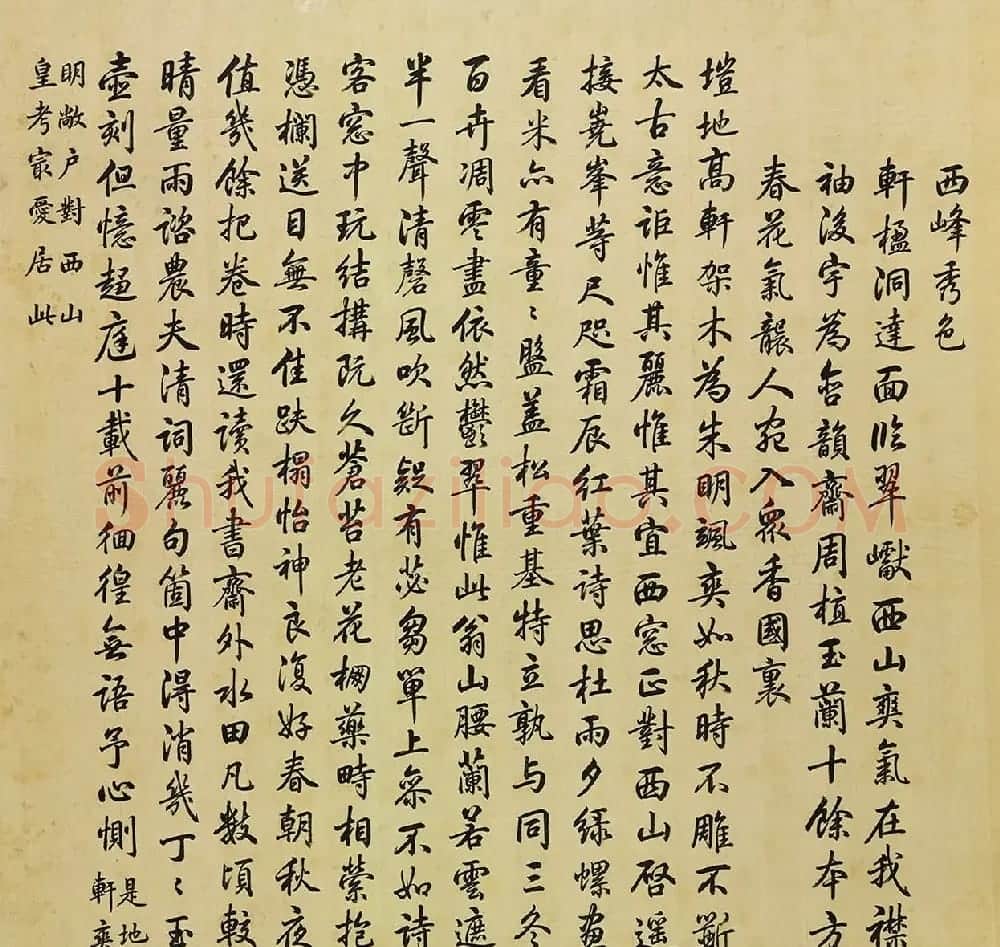 西峰秀色
軒楹洞達面臨翠巘西山爽氣在我襟
袖後宇為含韻齋周植玉蘭十餘本方
春花氣襲人宛入眾香國裏
塏地高軒架木為朱明颯爽如秋時不雕不斲
太古意詎惟其麗惟其宜西窓正對西山啓遥
接嶤峯等尺咫霜辰紅葉詩思杜雨夕綠螺畫
看米亦有童〻盤蓋松重基特立孰与同三冬
百卉凋零盡依然鬱翠惟此翁山腰蘭若雲遮
半一聲清磬風吹斷疑有苾芻單上參不如詩
客窓中玩結搆既久蒼苔老花欄藥畤相縈抱
憑欄送目無不佳趺榻怡神良復好春朝秋夜
值幾餘把卷時還讀我書齋外水田凡數頃較
晴量雨諮農夫清詞麗句箇中得消幾丁〻玉
壺刻但憶趨庭十載前徊徨無語予心惻
是地
軒爽
明敞户對西山
皇考㝡愛居此
Shufaziliao.COM